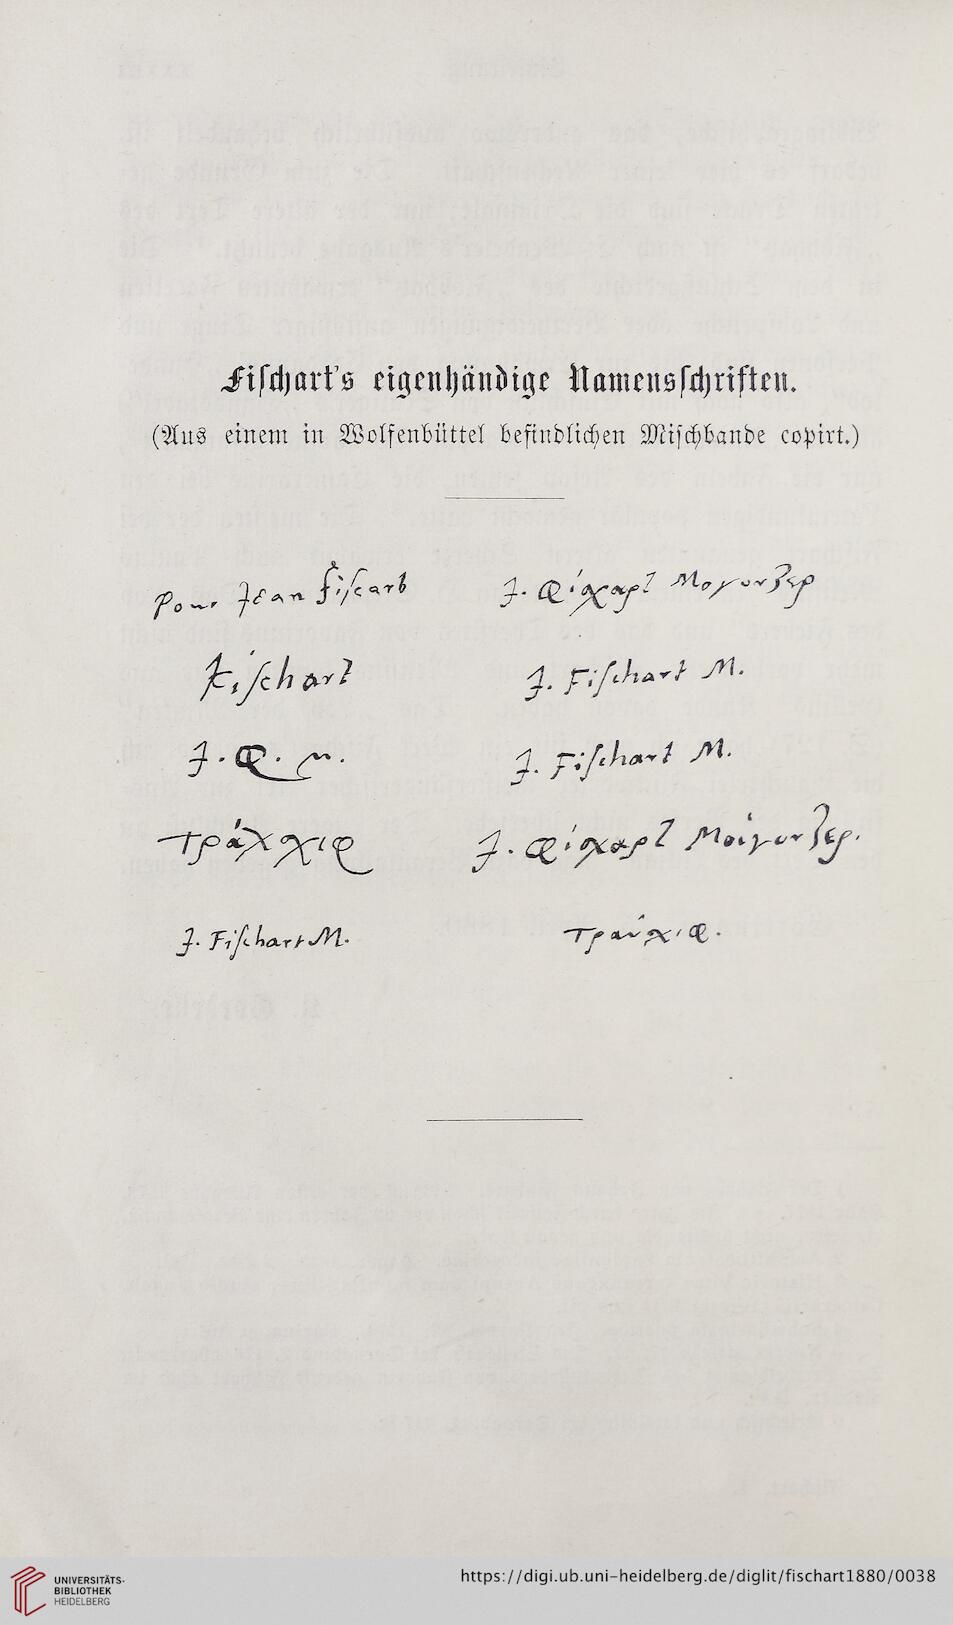 Fiſchart's eigenhändige Namensſchriften.
(Aus einem in Wolfenbüttel befindlichen Miſchbande copirt.)
Pour Jean Fiſcart
J. Φίχαρτ
Fiſchart
J. Fiſchart M.
J. Φ. M.
J. Fiſchart M.
J. Φίχαρτ
J. Fiſchart M.
UNIVERSITÄTS-
BIBLIOTHEK
HEIDELBERG
https://digi.ub.uni-heidelberg.de/diglit/fischart1880/0038